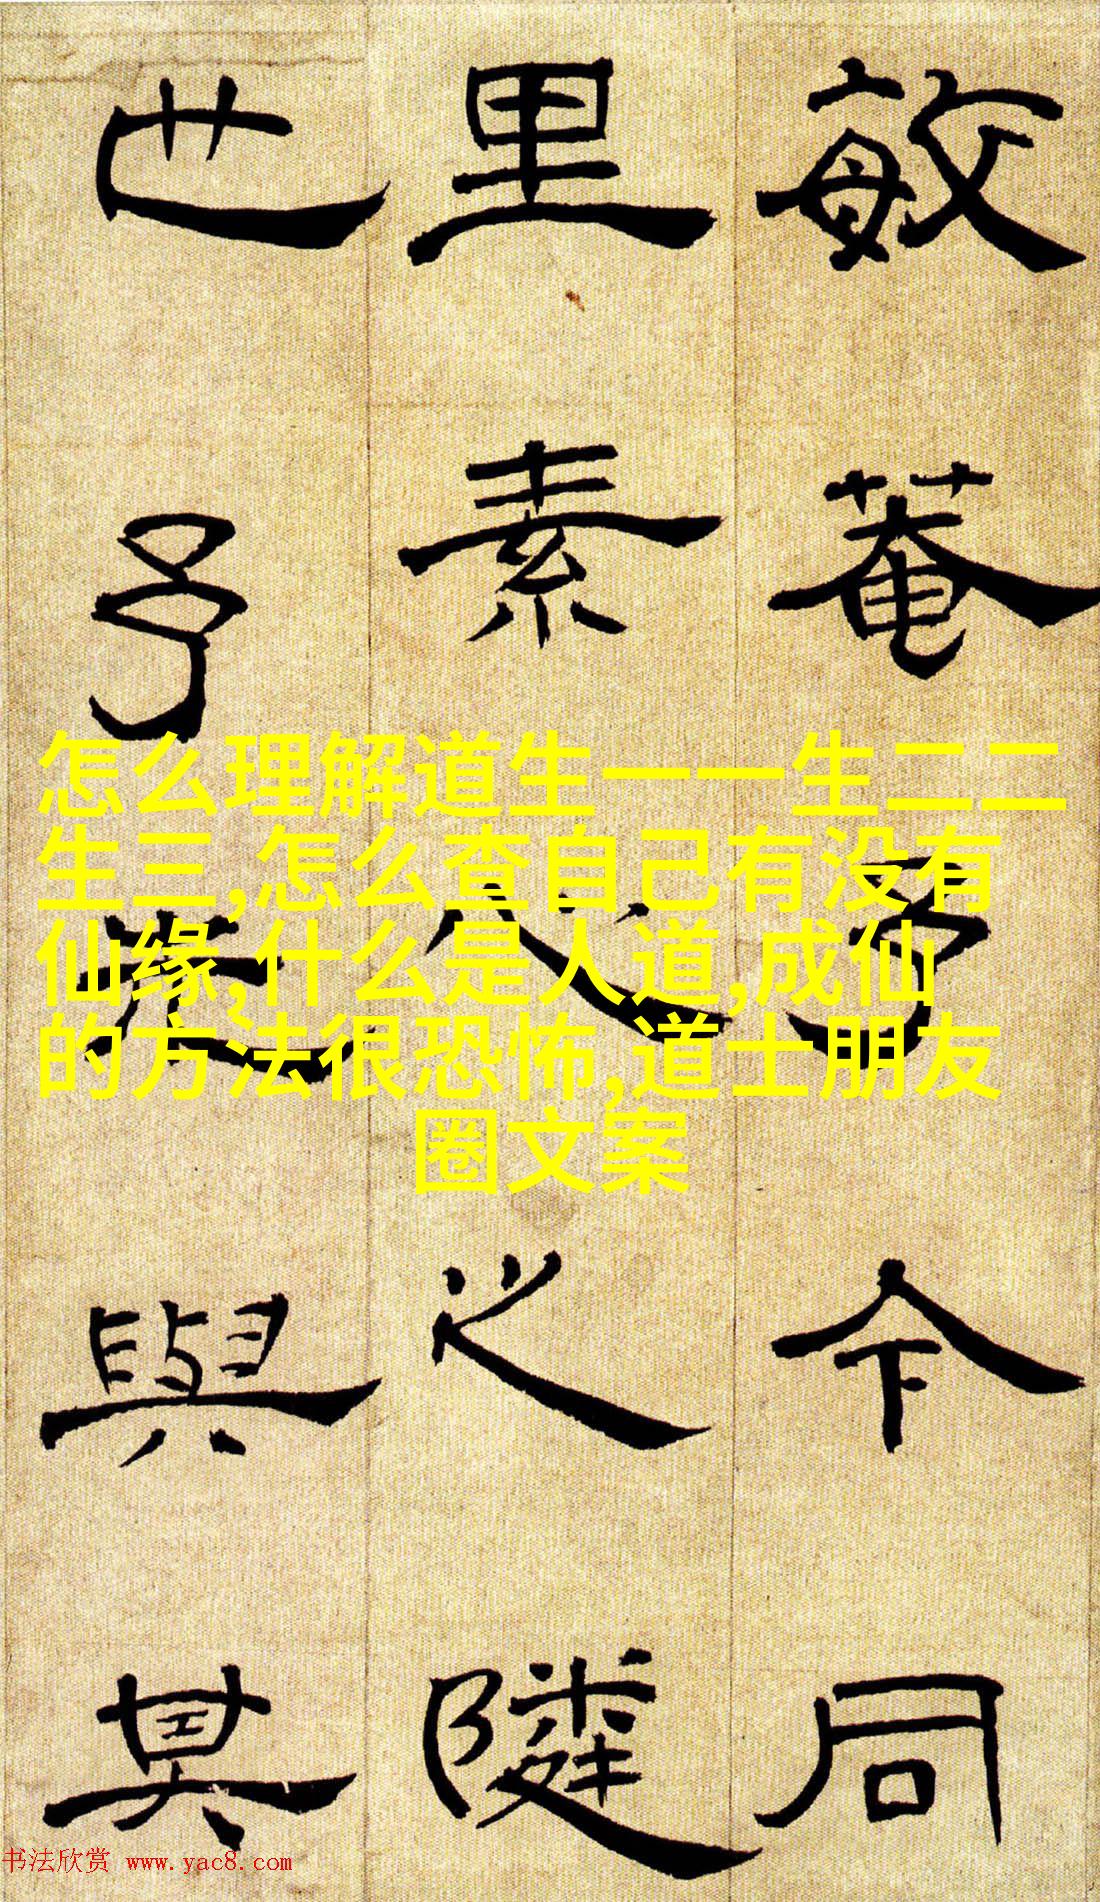 敏菴予今同
里素心之隣
也予與其
怎么理解道生一一生二二
生三,怎么查自己有没有
仙缘,什么是人道,成仙
的方法很恐怖,道士朋友
圈文案
书法欣赏 www.yac8.com